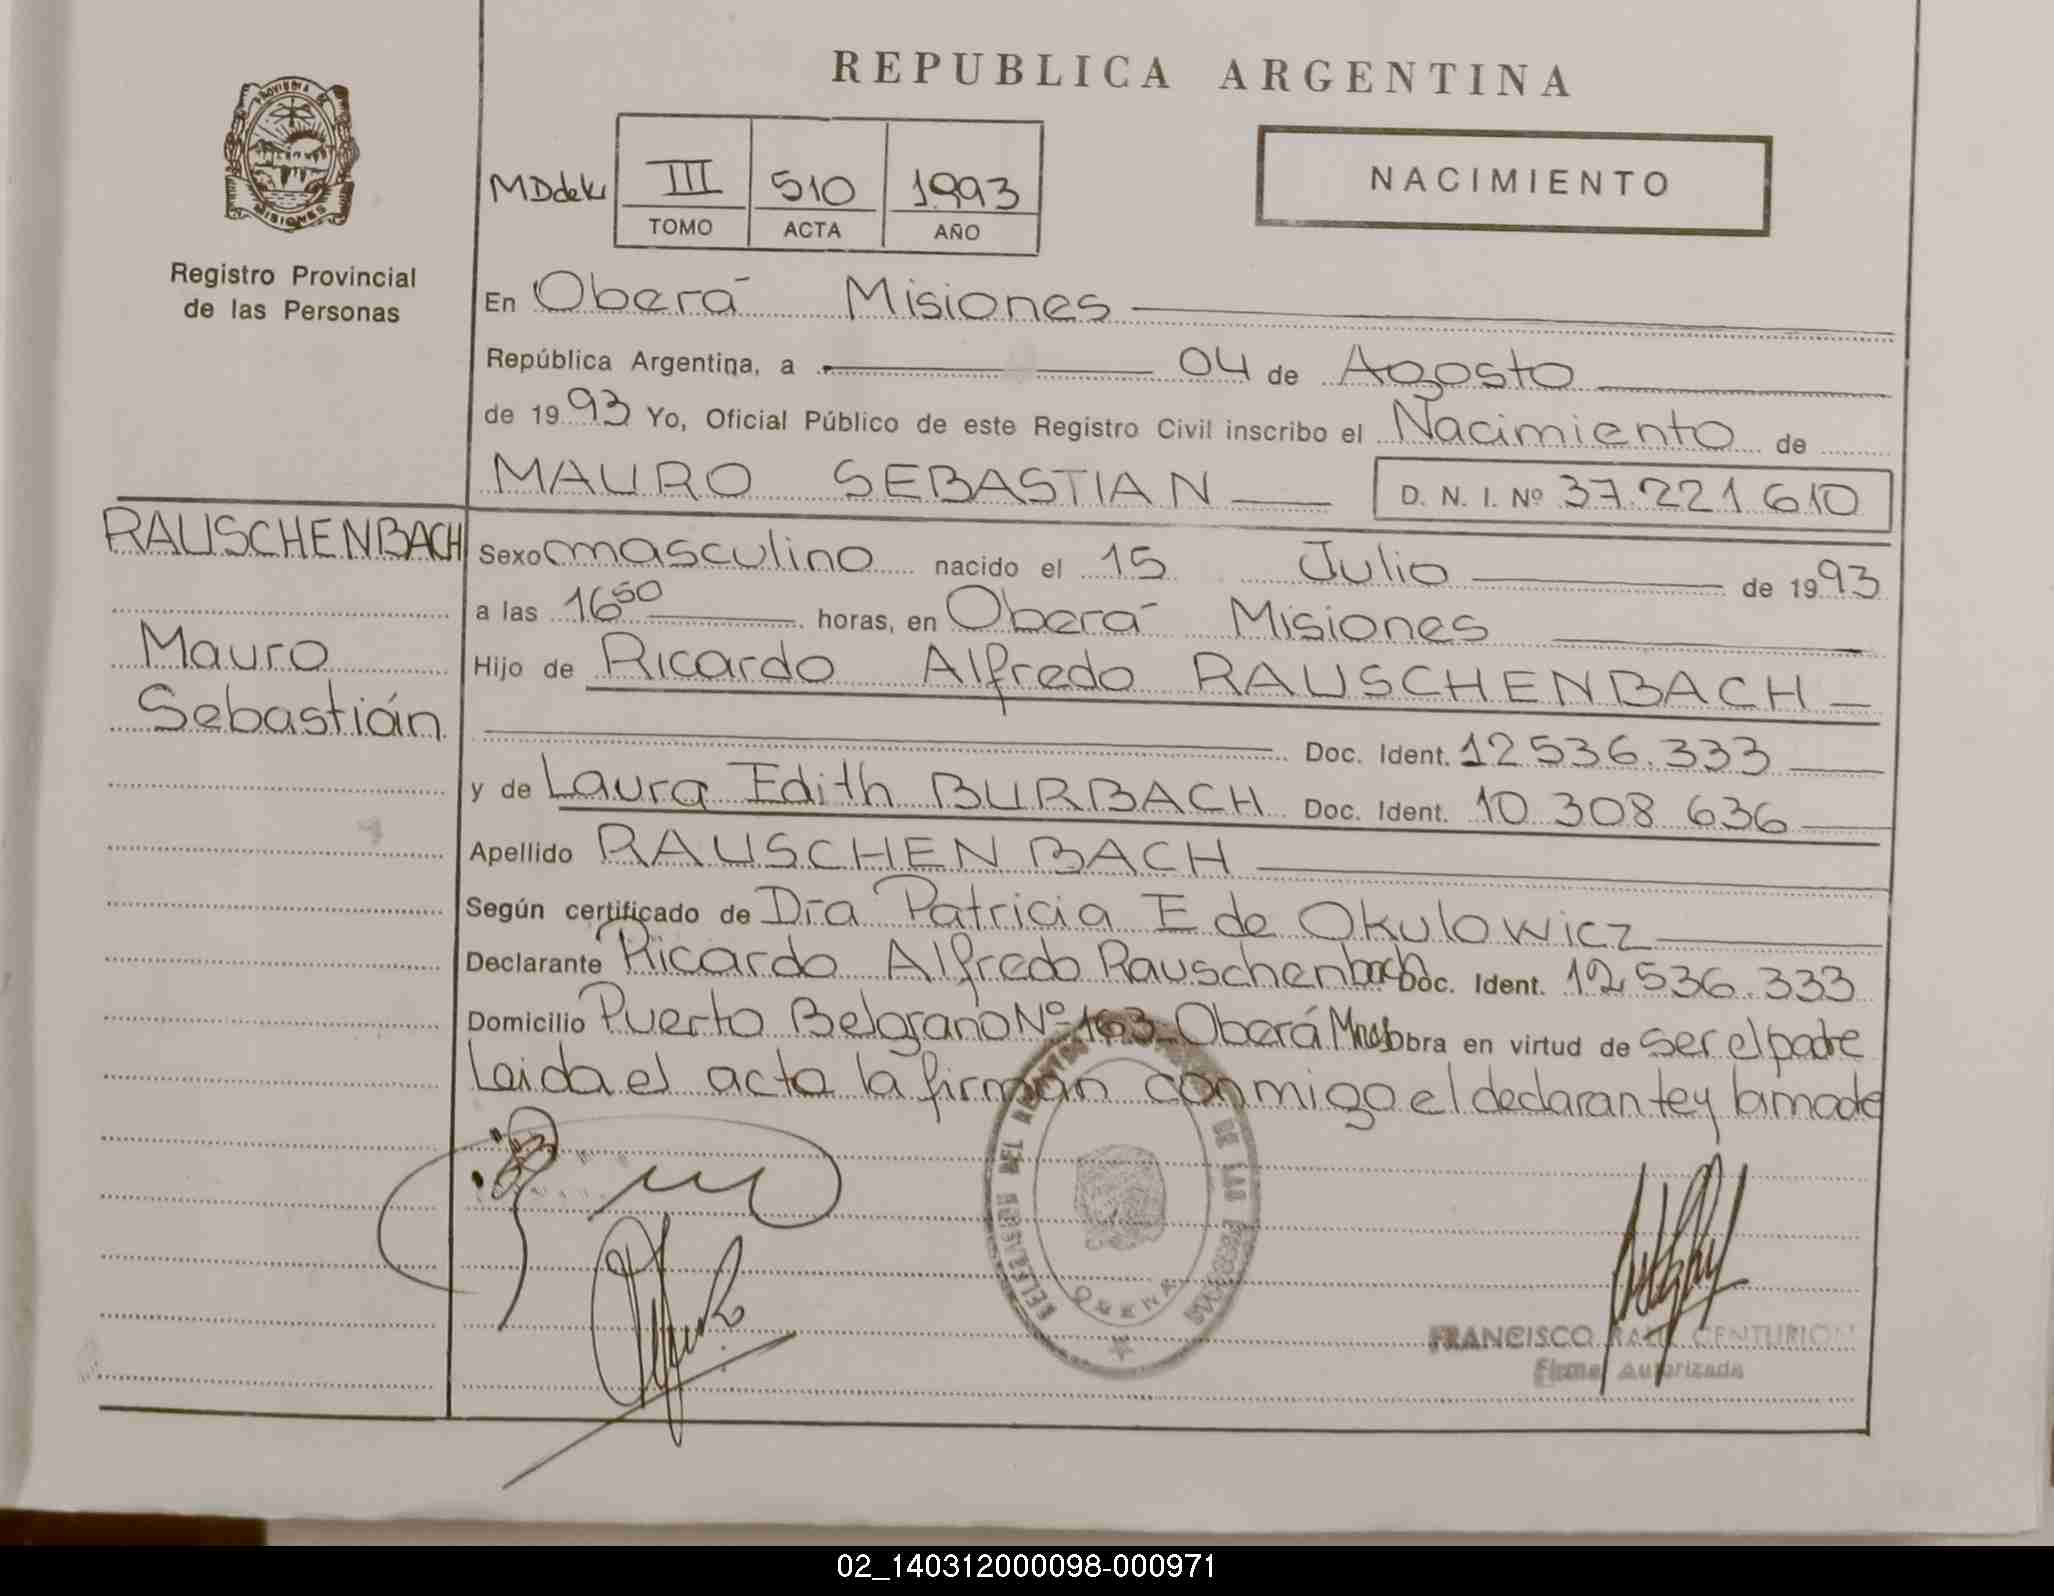 REPUBLICA ARGENTINA
PROVINCIA DE
MISIONES
Registro Provincial
de las Personas
MDdeK
III 510 1993
TOMO ACTA AÑO
NACIMIENTO
En Oberá Misiones
República Argentina, a 04 de Agosto
de 1993 Yo, Oficial Público de este Registro Civil inscribo el Nacimiento de
MAURO SEBASTIAN D. N. I. Nº 37.221.610
RAUSCHENBACH
Mauro
Sebastián
Sexo masculino nacido el 15 Julio de 1993
a las 16 50 horas, en Oberá Misiones
Hijo de Ricardo Alfredo RAUSCHENBACH
Doc. Ident. 12 536.333
y de Laura Edith BURBACH Doc. Ident. 10 308 636
Apellido RAUSCHENBACH
Según certificado de Dra Patricia E de Okulowicz
Declarante Ricardo Alfredo Rauschenbach Doc. Ident. 12.536.333
Domicilio Puerto Belgrano Nº 163 Oberá Mnes Obra en virtud de ser el padre
Leida el acta la firman conmigo el declarante y la madre
FRANCISCO RAUL CENTURION
Firma Autorizada
02_140312000098-000971